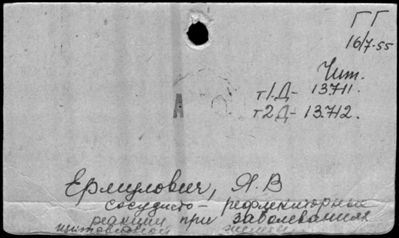 ГГ
16/7-55
Чит.
т1.Д- 13711.
т2Д- 13.712.
А
Ермулович, Я.В
сосудисто - рефлекторные
реакции при заболеваниях
щитовидной железы